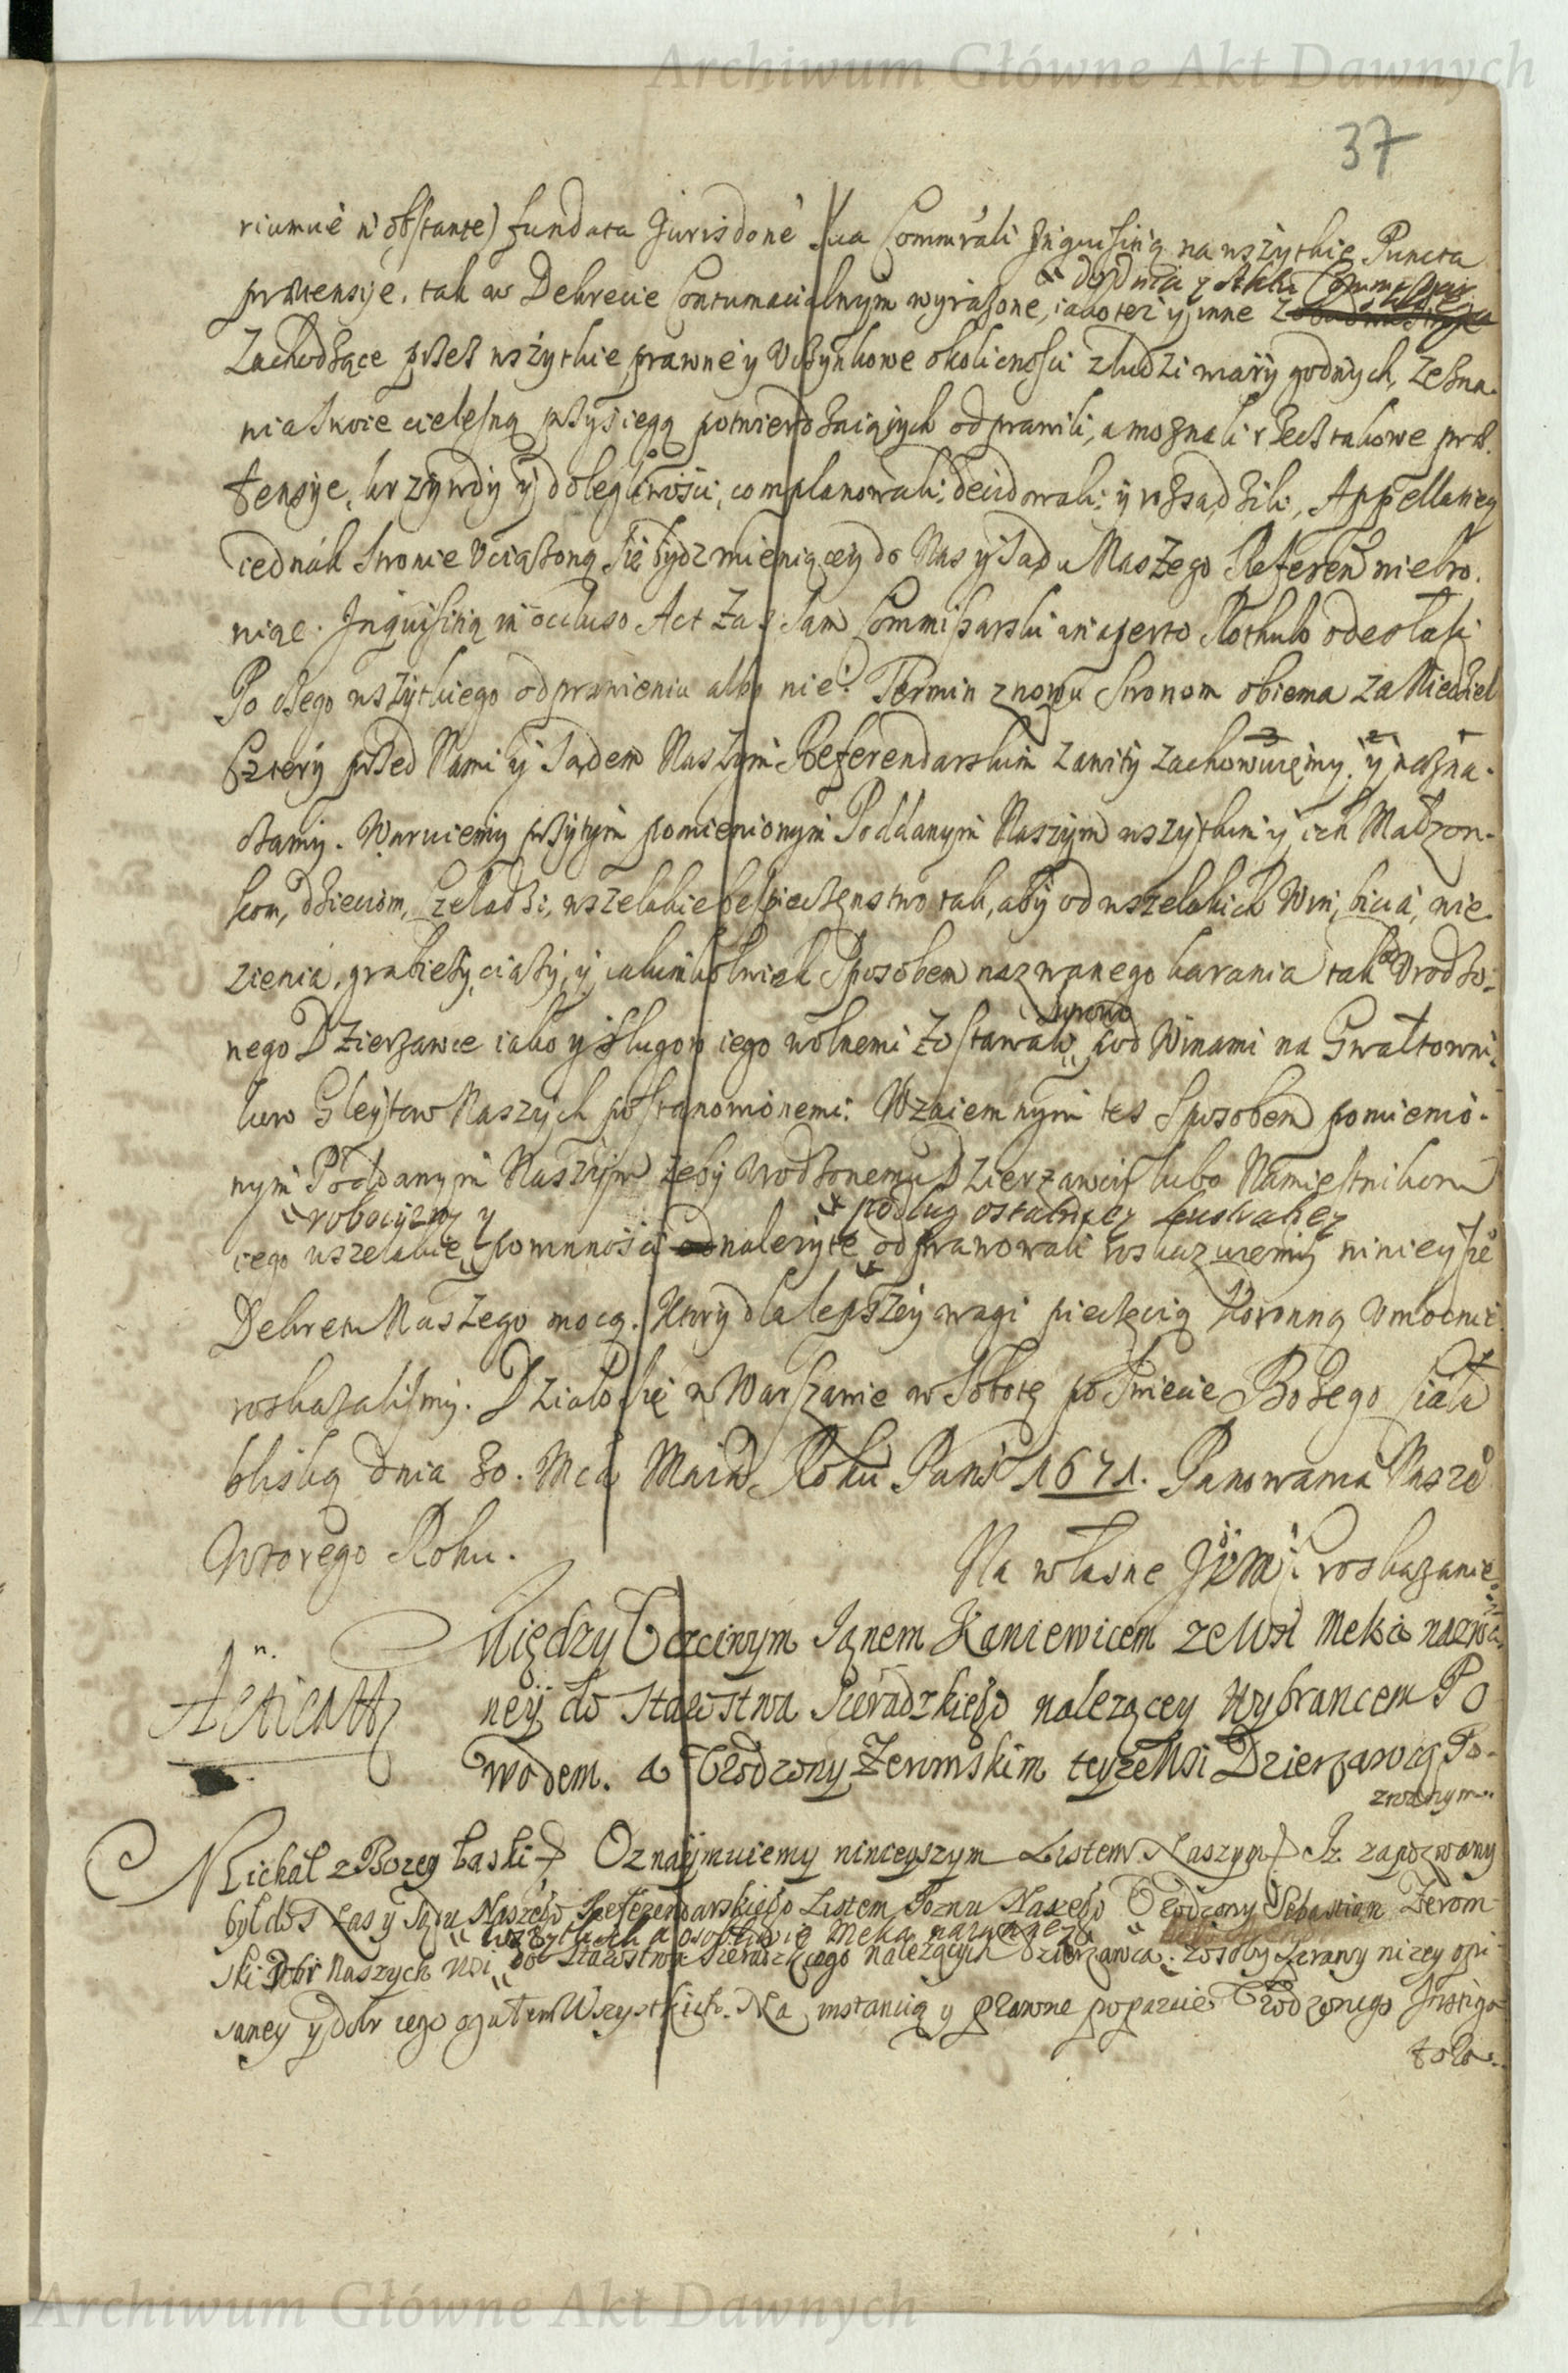 Archiwum Główne Akt Dawnych
37
riumue n obstante) fundata Jurisdone sua Commrali Inquisitią na wszytkie Puncta
praetensye, tak w Dekrecie Contumacialnym wyrażone, iako też y inne
z Aktu Commissiey
Zachodzące przez wszytkie prawne y Uczynkowe okolicnosci z ludzi wiary godnych, Zezna-
nia swoie cielesną przysięgą potwierdzaiących odprawili, a mogłali rzecz takowe prae-
tensye, krzywdy y dolegliwosci, complanowali, decidowali, y rozsądzili, Appellatiey
iednak stronie Uciążoną się bydz mieniącey do Nas y Sądu Naszego Referen niebro-
niąc. Inquisitią in occluso Act Zas sam Commissarski in aperto Rothulo odesłali
Po czego wszytkiego odprawieniu albo nie: Termin znowu stronom obiema za Niedziel
Cztery przed Nami y Sądem Naszym Referendarskim zawity zachowuięmy, y nazna-
czamy. Waruiemy przytym pomienionym Poddanym Naszym wszytkim y ich Małżon-
kom, dzieciom, Czeladzi, wszelakie bespieczenstwo tak, aby od wszelakich Win, bicia, wię-
zienia, grabieży, ciąży, y iakimkolwiek Sposobem nazwanego karania tak od Urodzo-
nego Dzierzawce iako y sługow iego wolnemi zostawali,
surowo
pod Winami na Gwałtowni-
kow Gleytow Naszych postanowionemi: Wzaiemnym tez Sposobem pomienio-
nym Poddanym Naszym żeby Urodzonemu Dzierzawcy lubo Namiestnikom
robocizny y
podług ostatniey Lustratiey
iego wszelakie powinnosci należyte odprawowali roskazuiemy ninieysze
Dekretu Naszego mocą. Ktory dla lepszey wagi pieczęcią Koronną Umocnic
roskazalismy. Działo się w Warszawie w Sobotę po Swiecie Bożego Ciała
bliską dnia 30. Mca Maia Roku Panu 1671. Panowania Nasze
Wtorego Roku.
Na własne JKM roskazanie
Między Uczciwym Janem Kaniewicem ze Wsi Meka nazwa-
ney do Starostwa Sieradzkiego nalezącey Wybrancem Po
wodem. a Urodzony Zeromskim teyze Wsi Dzierzawcą Po-
zwanym
Michał z Bozey Łaski Oznaymuiemy ninieyszym Listem Naszym Iz zapozwany
był do Nas y Sądu Naszego Referendarskiego Listem Pozwu Naszego Urodzony Sebastian Zerom-
wszytkich a osobliwie Meka nazwaney
ski Dobr Naszych Wsi do Starostwa Sieradzkiego należących Dzierzawca z osoby sprawy nizey opi-
saney y dobr iego ogułem Wszystkich. Na instancią y prawne poparcie Urodzonego Instiga-
tora
Archiwum Główne Akt Dawnych